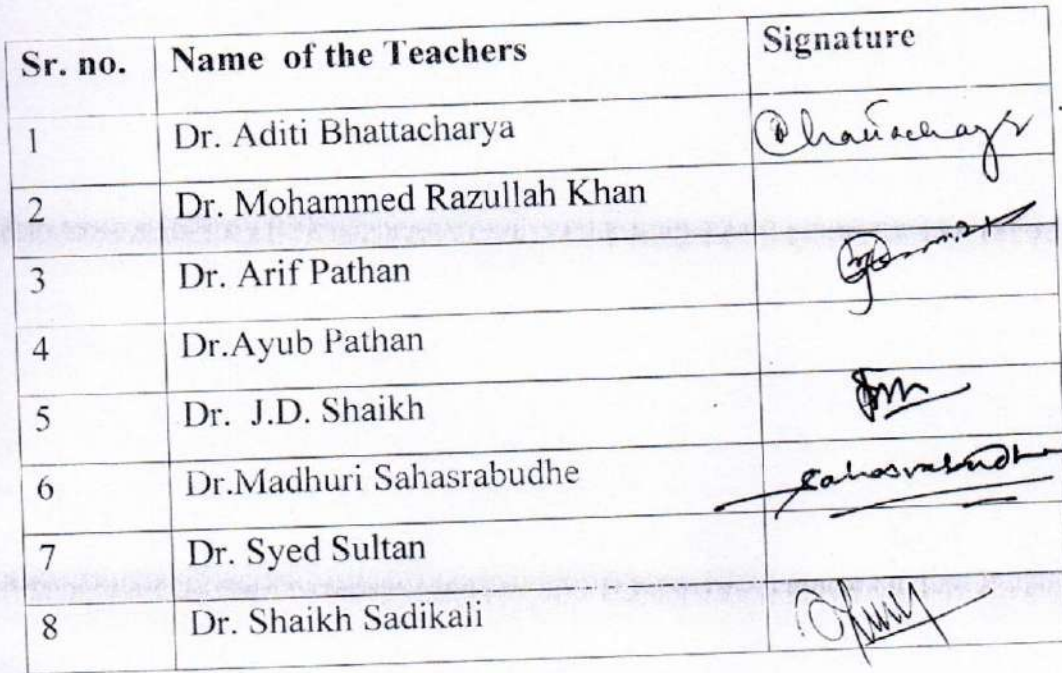 Sr. no. Name of the Teachers Signature
1 Dr. Aditi Bhattacharya
2 Dr. Mohammed Razullah Khan
3 Dr. Arif Pathan
4 Dr.Ayub Pathan
5 Dr. J.D. Shaikh
6 Dr.Madhuri Sahasrabudhe Sahasrabudhe
7 Dr. Syed Sultan
8 Dr. Shaikh Sadikali